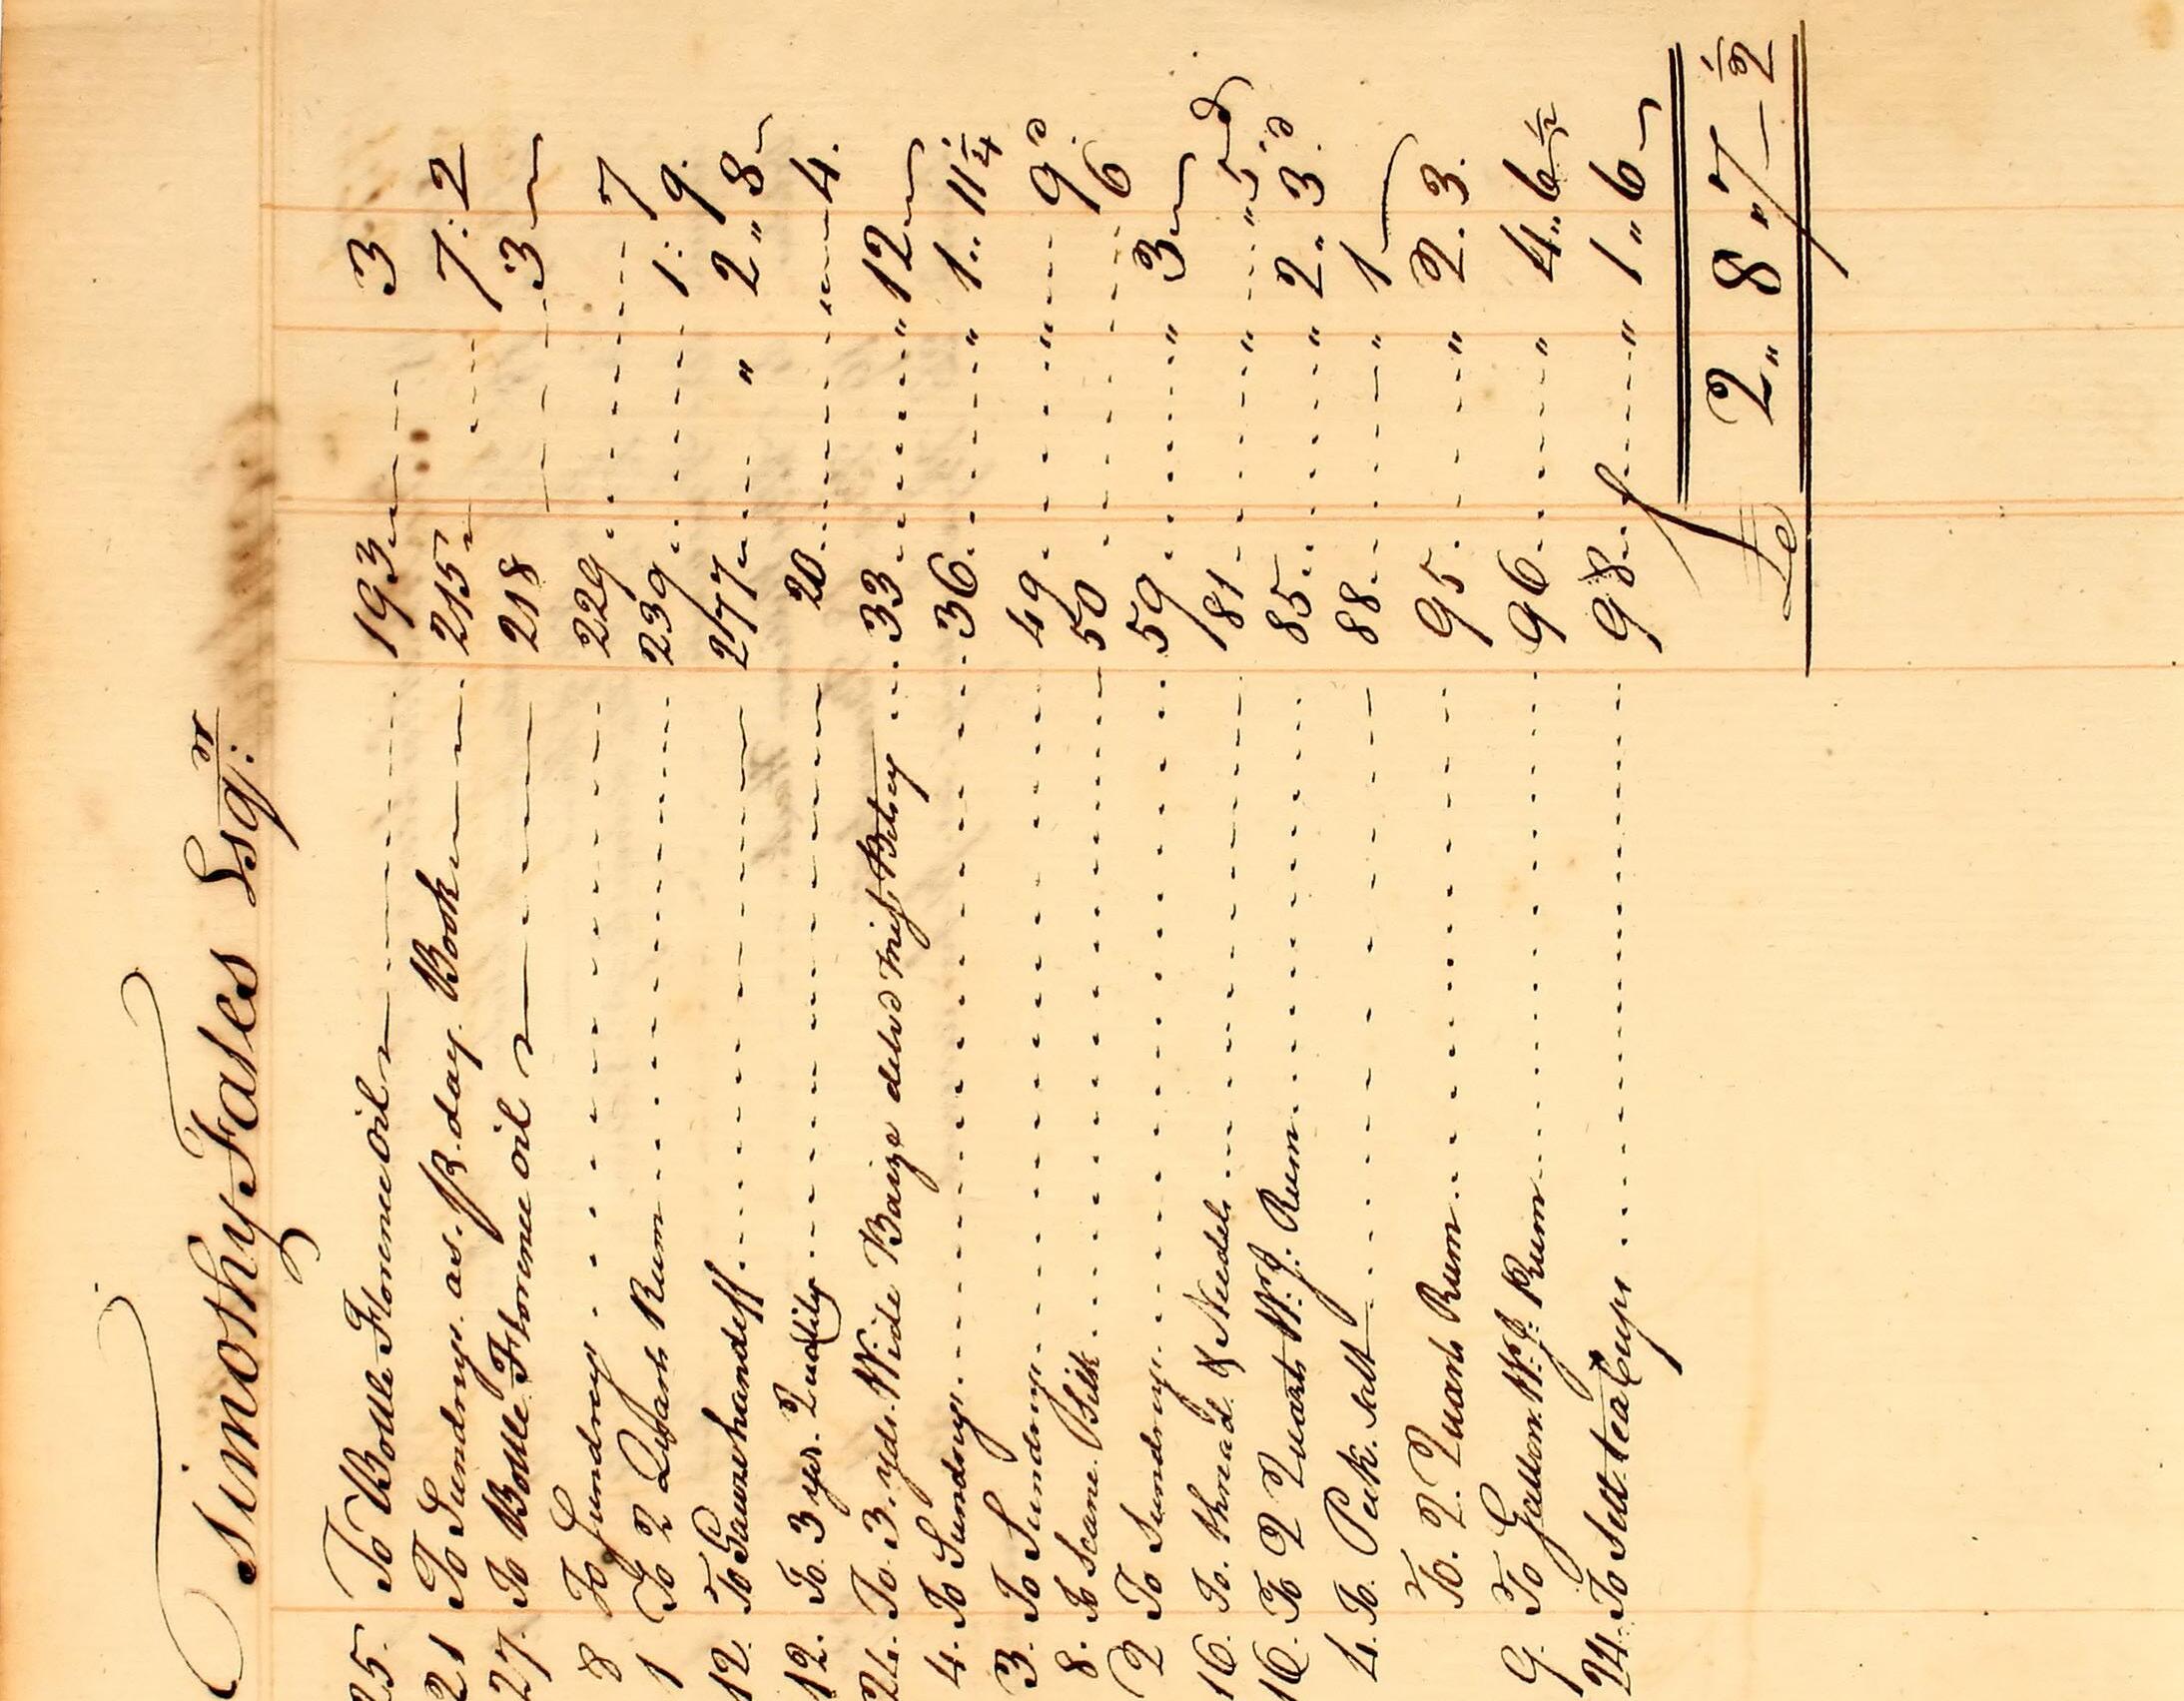 Timothy Fales Esqr.
25. To Bottle Florence oil 193 3
21 To Sundrys as. pr. day Book 215 7: 2
27. To Bottle Florence oil 218 3
8 To Sundrys 229. 7
1 To 2 Quarts Rum 239. 1: 9.
12. To 277 " 2 " 8
12. To. 3 yds. Quality 20. 4.
24. To. 3. yds. Wide Baize delvd miss Betsey 33. " 12
4. To Sundrys. 36. " 1 " 11 1/4
3. To Sundrys. 49. " 9d
8. To Scane. Silk 50 6
2 To Sundrys. 59. " 3
16. To. thread. & Needls 81. " " 5d
16. To 2 Quarts W. I. Rum 85. " 2 " 3.d
4. To. Peck. salt 88. " 1
To. 2. Quarts Rum 95. " 2. 3.
9. To Gallon. W. I. Rum 96. " 4 " 6 1/2
24. To Sett tea Cups 98. " 1 " 6
£ 2 " 8 " 7 1/2